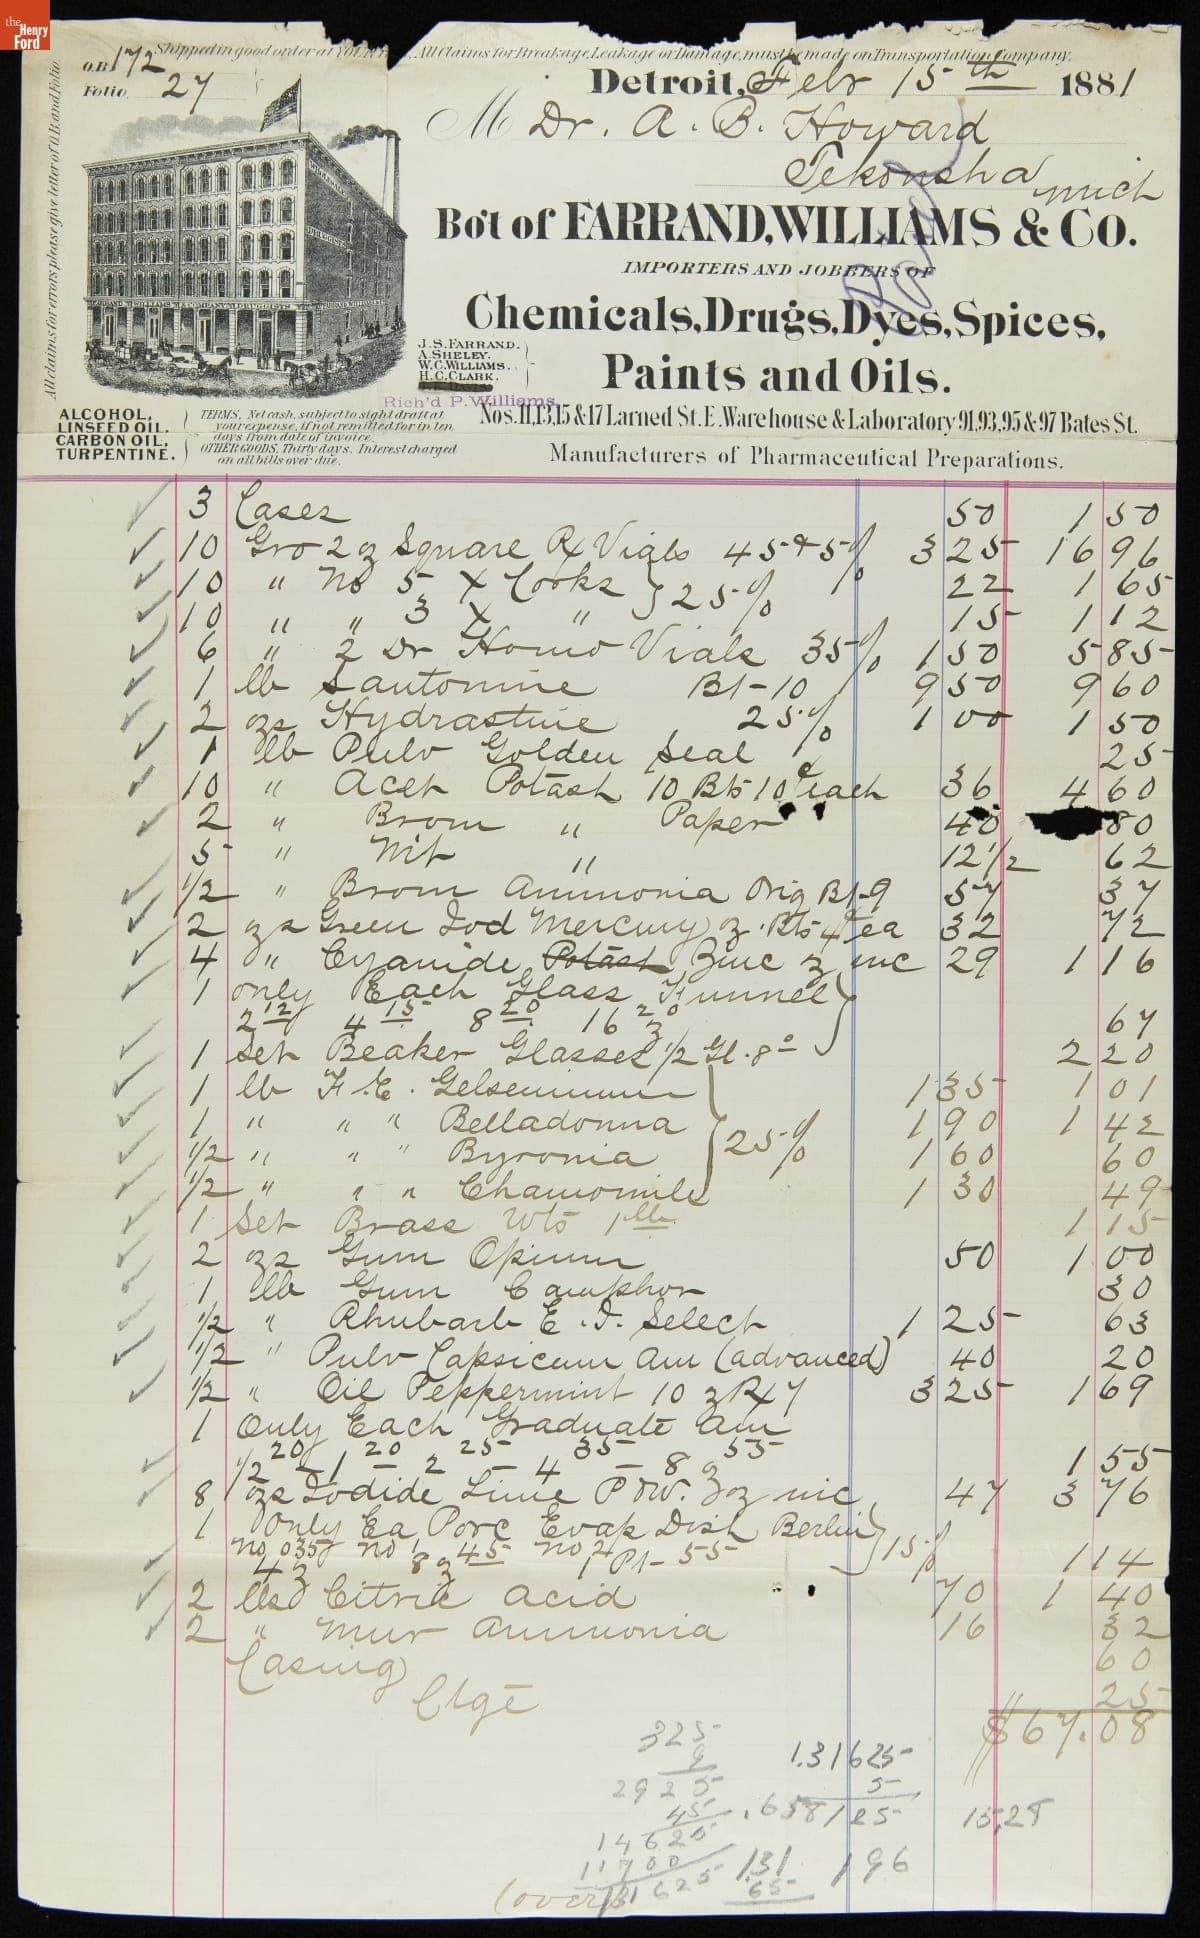 the Henry Ford
Shipped in good order at All Claims for Breakage, Leakage or Damage, must be made on Transportation Company.
O.B. 172
Folio 27
All claims for errors please give letter of O.B. and Folio.
Detroit, Febr 15th 1881
M Dr. A. B. Howard
Tekonsha Mich
Bo't of FARRAND, WILLIAMS & Co.
IMPORTERS AND JOBBERS OF
Chemicals, Drugs, Dyes, Spices,
Paints and Oils.
J.S. FARRAND.
A. SHELEY.
W.C. WILLIAMS.
H.C. CLARK.
Rich'd P. Williams.
Nos. 11, 13, 15 & 17 Larned St. E. Warehouse & Laboratory 91, 93, 95 & 97 Bates St.
Manufacturers of Pharmaceutical Preparations.
ALCOHOL,
LINSEED OIL.
CARBON OIL,
TURPENTINE.
TERMS, Net cash, subject to sight draft at
your expense, if not remitted for in ten
days from date of invoice.
OTHER GOODS, Thirty days. Interest charged
on all bills over due.
3 Cases 50 1 50
10 Gro 2 oz Square Rx Vials 45 & 5% 3 25 16 96
10 " No 5 X Corks } 25% 22 1 65
10 " " 3 X " 15 1 12
6 " 2 Dr Homo Vials 35% 1 50 5 85
1 lb Santonine Bt-10 9 50 9 60
2 ozs Hydrastine 25% 1 00 1 50
1 lb Pulv Golden Seal 25
10 " Acet Potash 10 Bts 10c each 36 4 60
2 " Brom " Paper 40 80
5 " Nit " 12 1/2 62
1/2 " Brom Ammonia Orig Bt-9 57 37
2 ozs Green Iod Mercury oz. Bts 4c ea 32 72
4 " Cyanide Potash Zinc oz inc 29 1 16
1 only Each Glass Funnel }
2 12 4 15 8 20 16 20 oz 67
1 Set Beaker Glasses 1/2 Gl. 8o 2 20
1 lb F.E. Gelsemium 1 35 1 01
1 " " " Belladonna } 25% 1 90 1 42
1/2 " " " Byronia 1 60 60
1/2 " " " Chamomile 1 30 49
1 Set Brass Wts 1 lb 1 15
2 ozs Gum Opium 50 1 00
1 lb Gum Camphor 30
1/2 " Rhubarb E.I. Select 1 25 63
1/2 " Pulv Capsicum Am (advanced) 40 20
1/2 " Oil Peppermint 10 oz Rx 7 3 25 1 69
1 Only Each Graduate Am
1/2 20 1 20 2 25 4 35 8 55 oz 1 55
8 ozs Iodide Lime P & W. oz inc 47 3 76
1 Only Ea Porc Evap Dish Berlin } 15%
No 0 35 No 1 45 No 2 55
4 oz 8 oz 1 Pt 1 14
2 lbs Citric Acid 70 1 40
2 " Mur Ammonia 16 32
Casing 60
Ctge 25
$67.08
325
9
2925
45
14625
11700
131625
1.31625
5
.658125
131
65
196
15,28
(over)